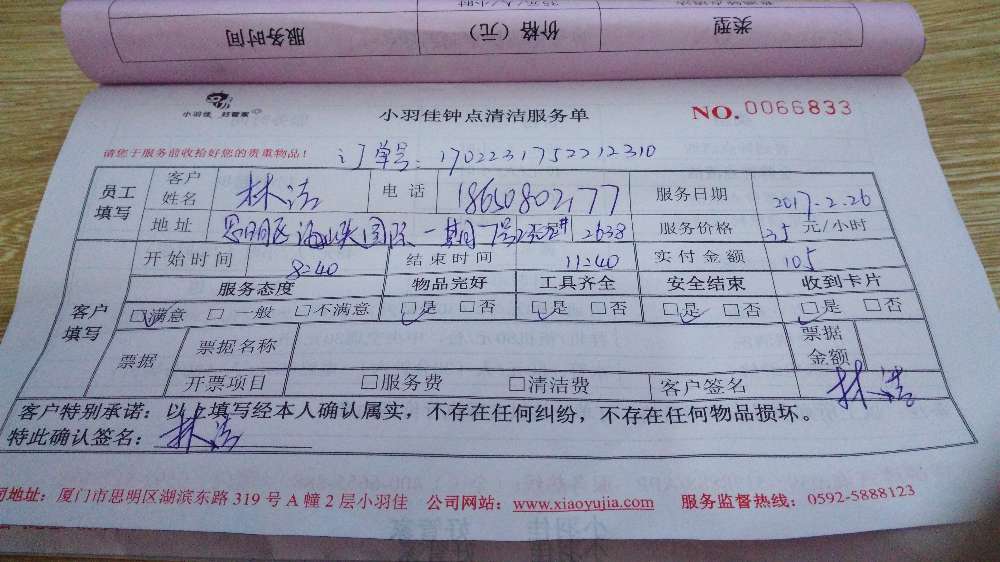 类型 价格（元） 服务时间
小羽佳 好管家
小羽佳钟点清洁服务单
NO. 0066833
请您于服务前收拾好您的贵重物品！
订单号：1702231752212310
员工填写 客户姓名 林洁 电话 服务日期 2017.2.26
地址 思明区海峡国际一期 2638 服务价格 35 元/小时
开始时间 8:40 结束时间 11:40 实付金额 105
客户填写 服务态度 物品完好 工具齐全 安全结束 收到卡片
☑满意 □一般 □不满意 ☑是 □否 ☑是 □否 ☑是 □否 ☑是 □否
票据 票据名称 票据金额
开票项目 □服务费 □清洁费 客户签名 林洁
客户特别承诺：以上填写经本人确认属实，不存在任何纠纷，不存在任何物品损坏。
特此确认签名：林洁
司地址：厦门市思明区湖滨东路 319 号 A 幢 2 层小羽佳 公司网站：www.xiaoyujia.com 服务监督热线：0592-5888123
小羽佳 好管家